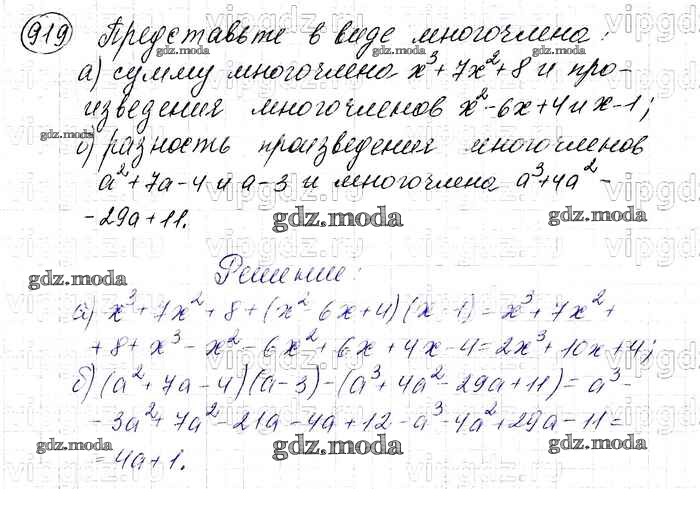 919 Представьте в виде многочлена:
а) сумму многочлена x³+7x²+8 и про-
изведения многочленов x²-6x+4 и x-1;
б) разность произведения многочленов
a²+7a-4 и a-3 и многочлена a³+4a²-
-29a+11.
Решение:
а) x³+7x²+8+(x²-6x+4)(x-1)=x³+7x²+
+8+x³-x²-6x²+6x+4x-4=2x³+10x+4;
б) (a²+7a-4)(a-3)-(a³+4a²-29a+11)=a³-
-3a²+7a²-21a-4a+12-a³-4a²+29a-11=
=4a+1.
vipgdz.ru
gdz.moda